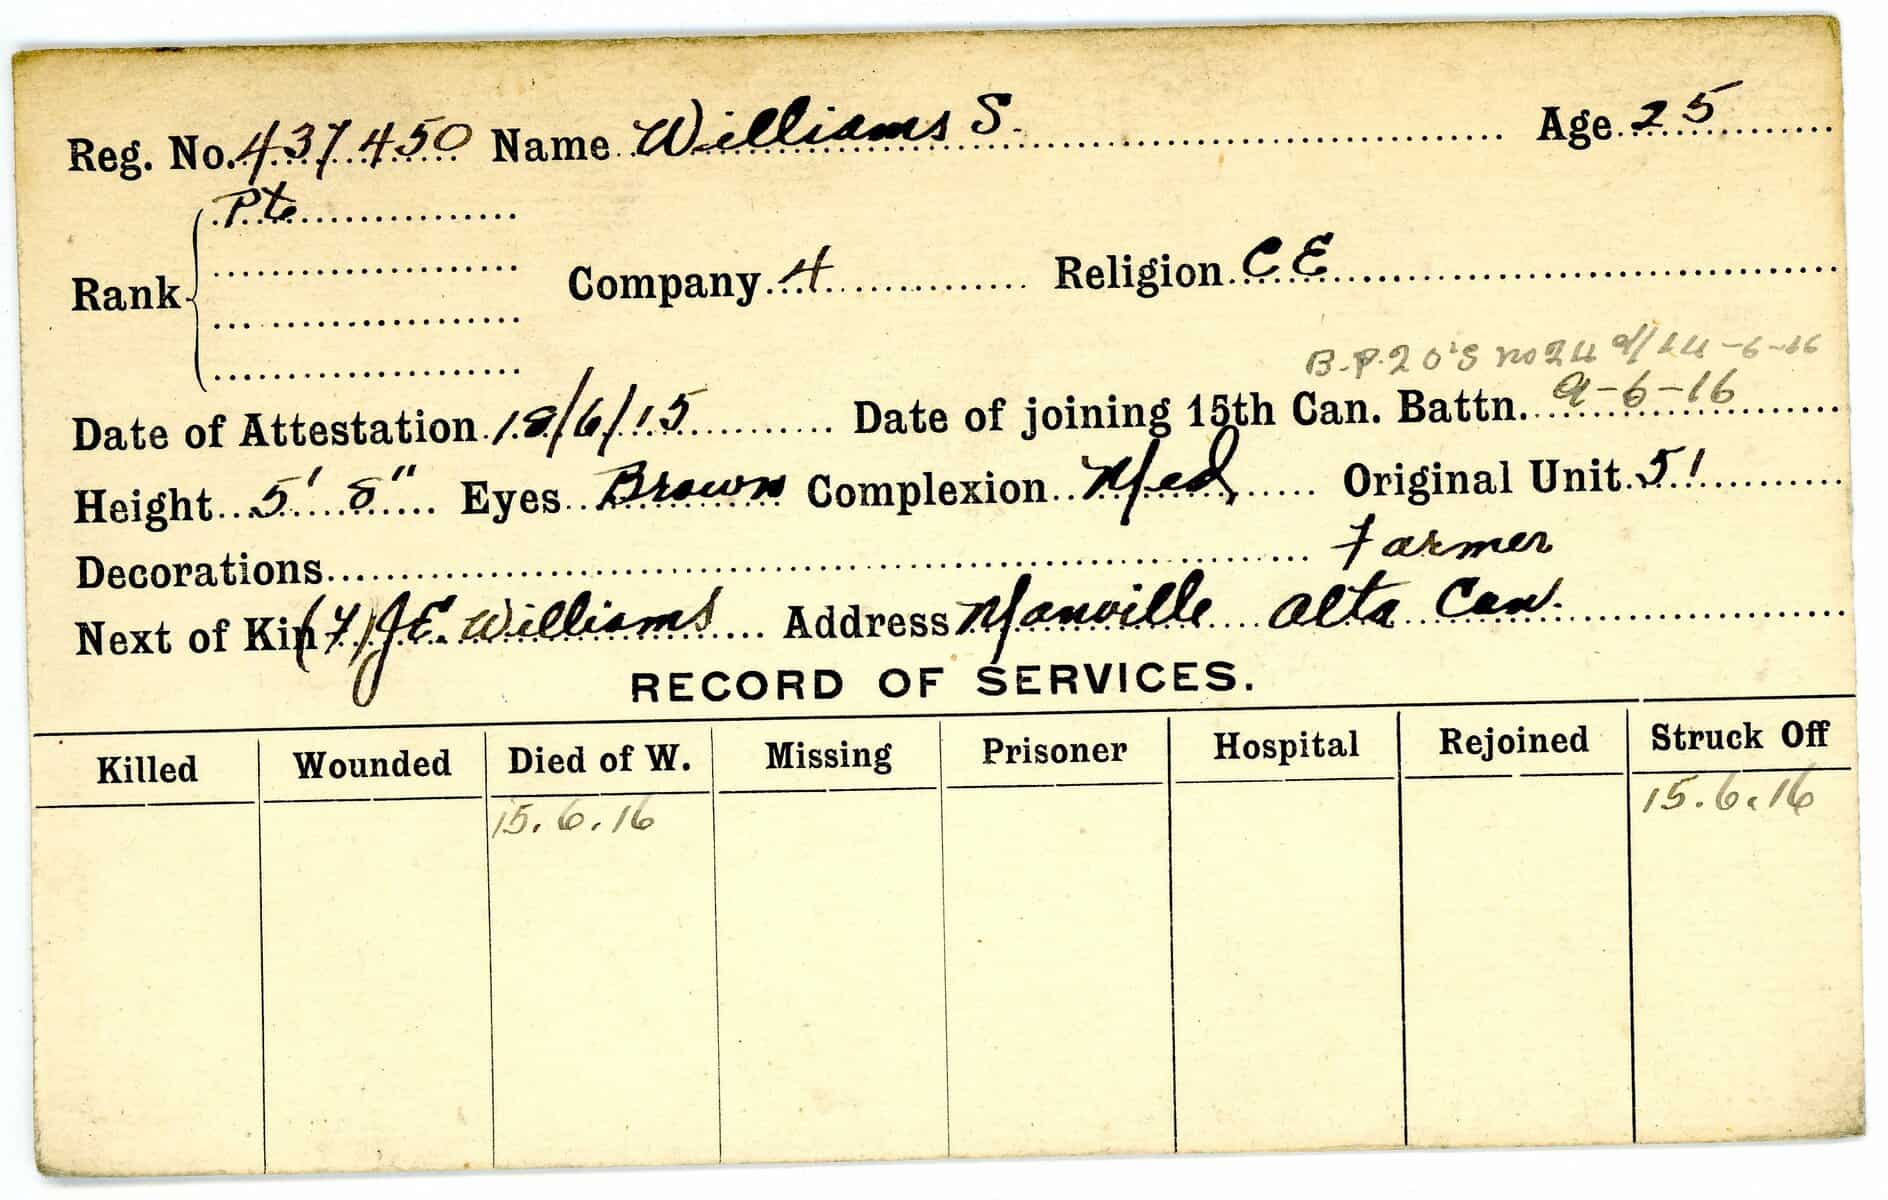 Reg. No. 437450 Name Williams S. Age 25
Pte
Rank Company 4 Religion C E
B.P. 2 O's no 24 d/14-6-16
Date of Attestation 18/6/15 Date of joining 15th Can. Battn. 9-6-16
Height 5' 8" Eyes Brown Complexion Med Original Unit 51
Decorations Farmer
Next of Kin (F) J.E. Williams Address Manville Alta Can.
RECORD OF SERVICES.
Killed Wounded Died of W. Missing Prisoner Hospital Rejoined Struck Off
15.6.16 15.6.16